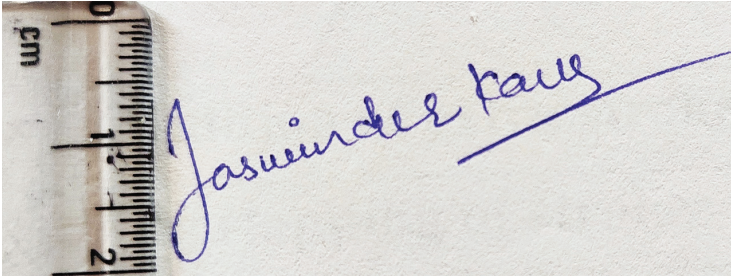 0
cm
1
2
Jasminder Kaur